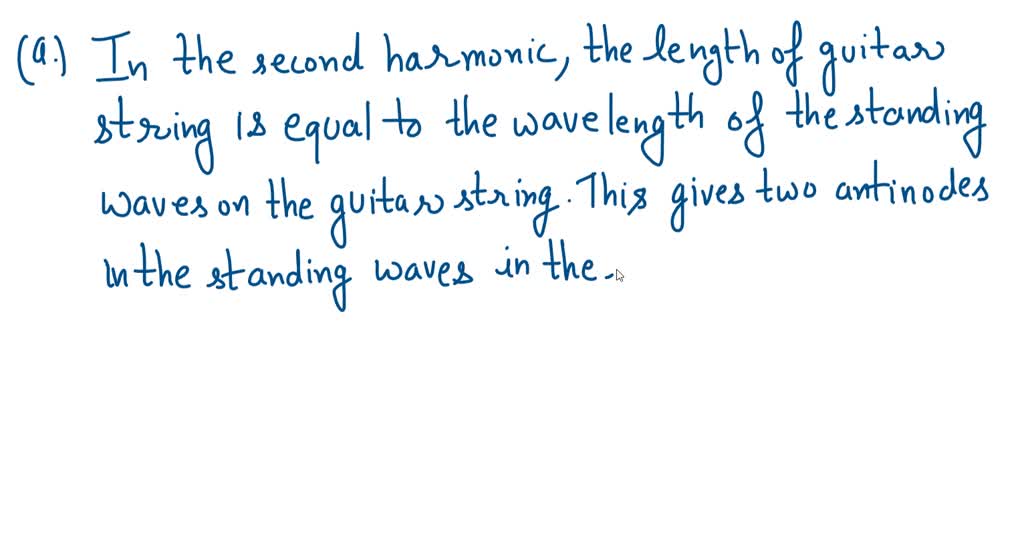 (a.) In the second harmonic, the length of guitar
string is equal to the wavelength of the standing
waves on the guitar string. This gives two antinodes
in the standing waves in the